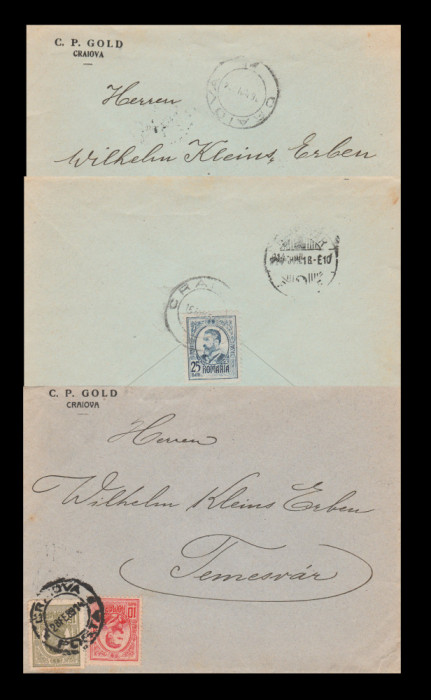 C. P. GOLD
CRAIOVA
CRAIOVA
Herren
Wilhelm Kleins Erben
CRAI
25
ROMANIA
C. P. GOLD
CRAIOVA
Herren
Wilhelm Kleins Erben
Temesvár
CRAIOVA
POSTA
10